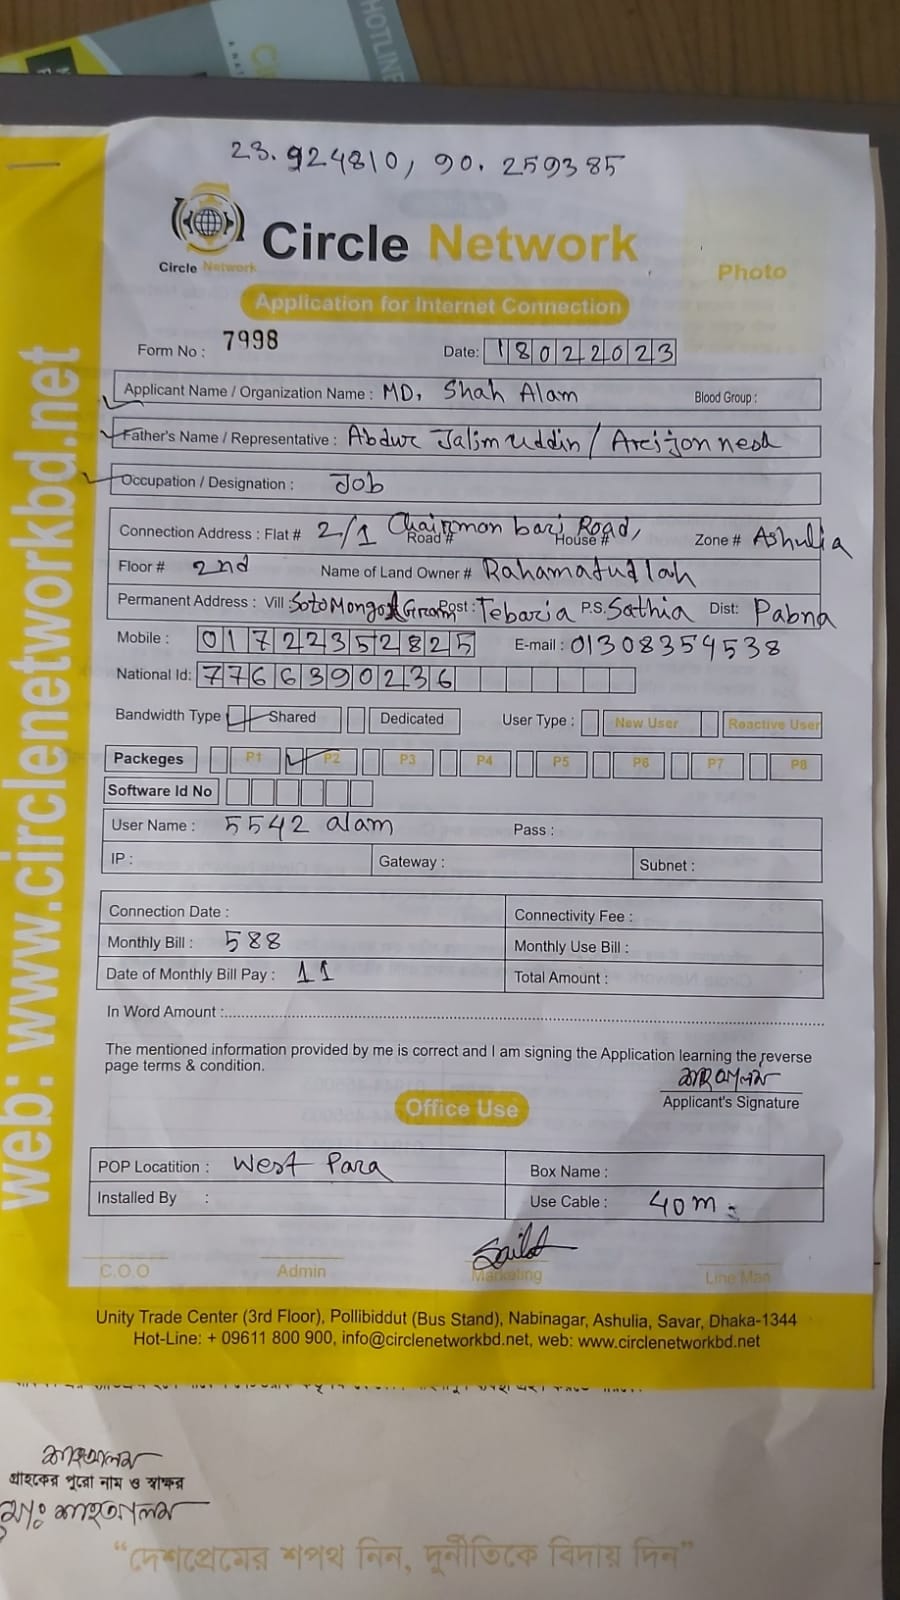 HOTLINE
23.924810, 90.259385
Circle Network
Circle Network
Photo
Application for Internet Connection
Form No : 7998
Date: 18022023
Applicant Name / Organization Name : MD. Shah Alam Blood Group :
Father's Name / Representative : Abdur Jalim uddin / Arijon nesa
Occupation / Designation : Job
Connection Address : Flat # 2/1 Chairman bari Road, Road # House # Zone # Ashulia
Floor # 2nd Name of Land Owner # Rahamatullah
Permanent Address : Vill : Post : Tebaria P.S. Sathia Dist: Pabna
Mobile : 01722352825 E-mail : 01308354538
National Id: 7766390236
Bandwidth Type Shared Dedicated User Type : New User Reactive User
Packeges P1 P2 P3 P4 P5 P6 P7 P8
Software Id No
User Name : 5542 alam Pass :
IP : Gateway : Subnet :
Connection Date : Connectivity Fee :
Monthly Bill : 588 Monthly Use Bill :
Date of Monthly Bill Pay : 11 Total Amount :
In Word Amount :
The mentioned information provided by me is correct and I am signing the Application learning the reverse
page terms & condition.
শাহআলম
Applicant's Signature
Office Use
POP Locatition : West Para Box Name :
Installed By : Use Cable : 40m
C.O.O Admin Marketing Line Man
Unity Trade Center (3rd Floor), Pollibiddut (Bus Stand), Nabinagar, Ashulia, Savar, Dhaka-1344
Hot-Line: + 09611 800 900, info@circlenetworkbd.net, web: www.circlenetworkbd.net
web: www.circlenetworkbd.net
শাহআলম
গ্রাহকের পুরো নাম ও স্বাক্ষর
মোঃ শাহআলম
“দেশপ্রেমের শপথ নিন, দুর্নীতিকে বিদায় দিন”